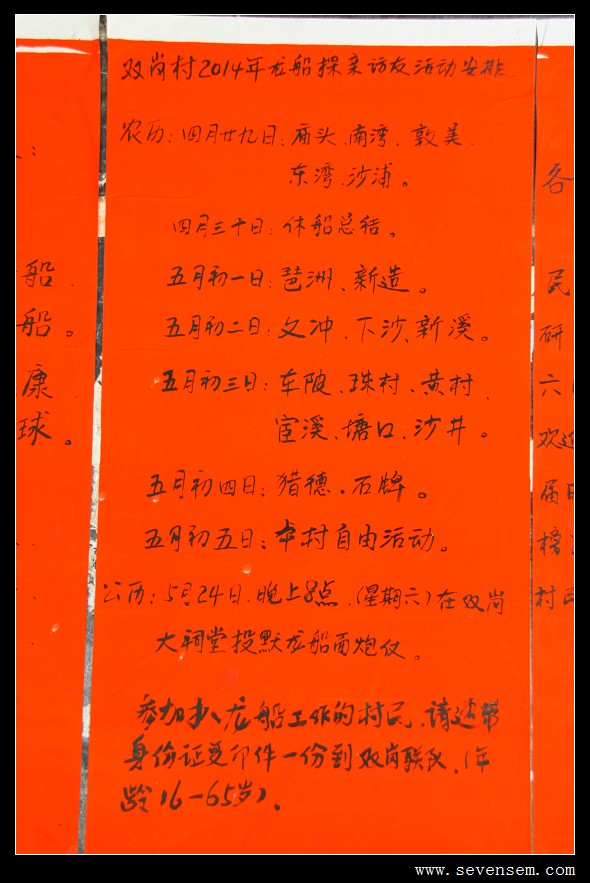 双岗村2014年龙船探亲访友活动安排
农历：四月廿九日：庙头、南湾、敦美、
东湾、沙浦。
四月三十日：休船总结。
五月初一日：琶洲、新造。
五月初二日：文冲、下沙、新溪。
五月初三日：车陂、珠村、黄村、
宦溪、塘口、沙井。
五月初四日：猎德。石牌。
五月初五日：本村自由活动。
公历：5月24日、晚上8点、（星期六）在双岗
大祠堂投默龙船面炮仪。
参加扒龙船工作的村民、请
身份证复印件一份到双岗联氏、（年
龄16-65岁）。
：
船、
船。
康
球。
各
民
研
六
欢迎
届
榜
村民
www.sevensem.com